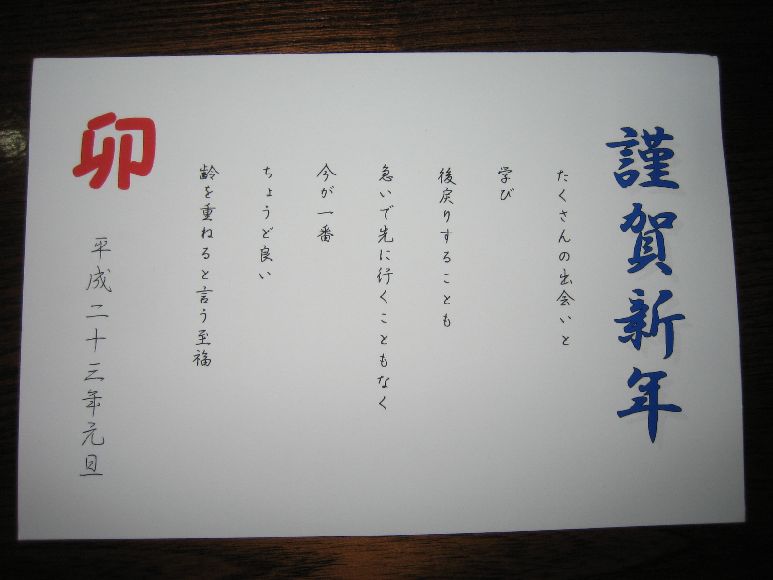 謹賀新年
たくさんの出会いと
学び
後戻りすることも
急いで先に行くこともなく
今が一番
ちょうど良い
齢を重ねると言う至福
卯
平成二十三年元旦